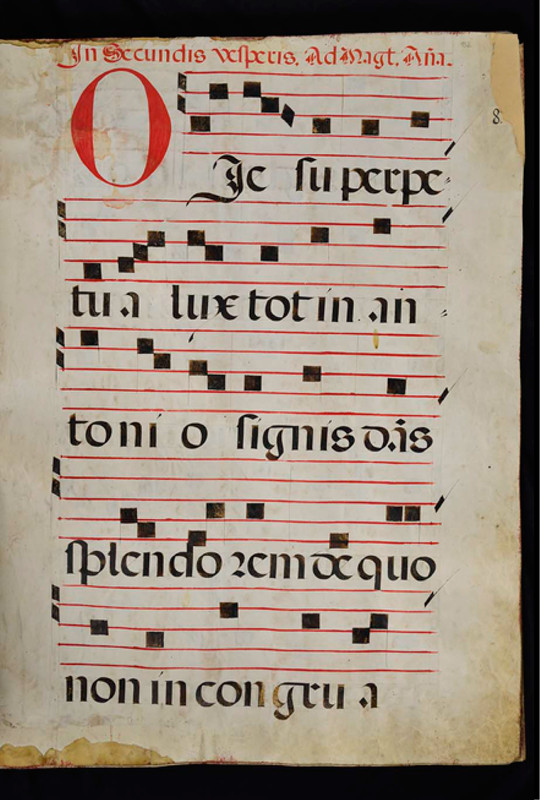 In Secundis vesperis. Ad Magt. Aña.
8.
O Je su perpe
tu a lux tot in an
toni o signis d.is
splendo rem de quo
non in con gru a